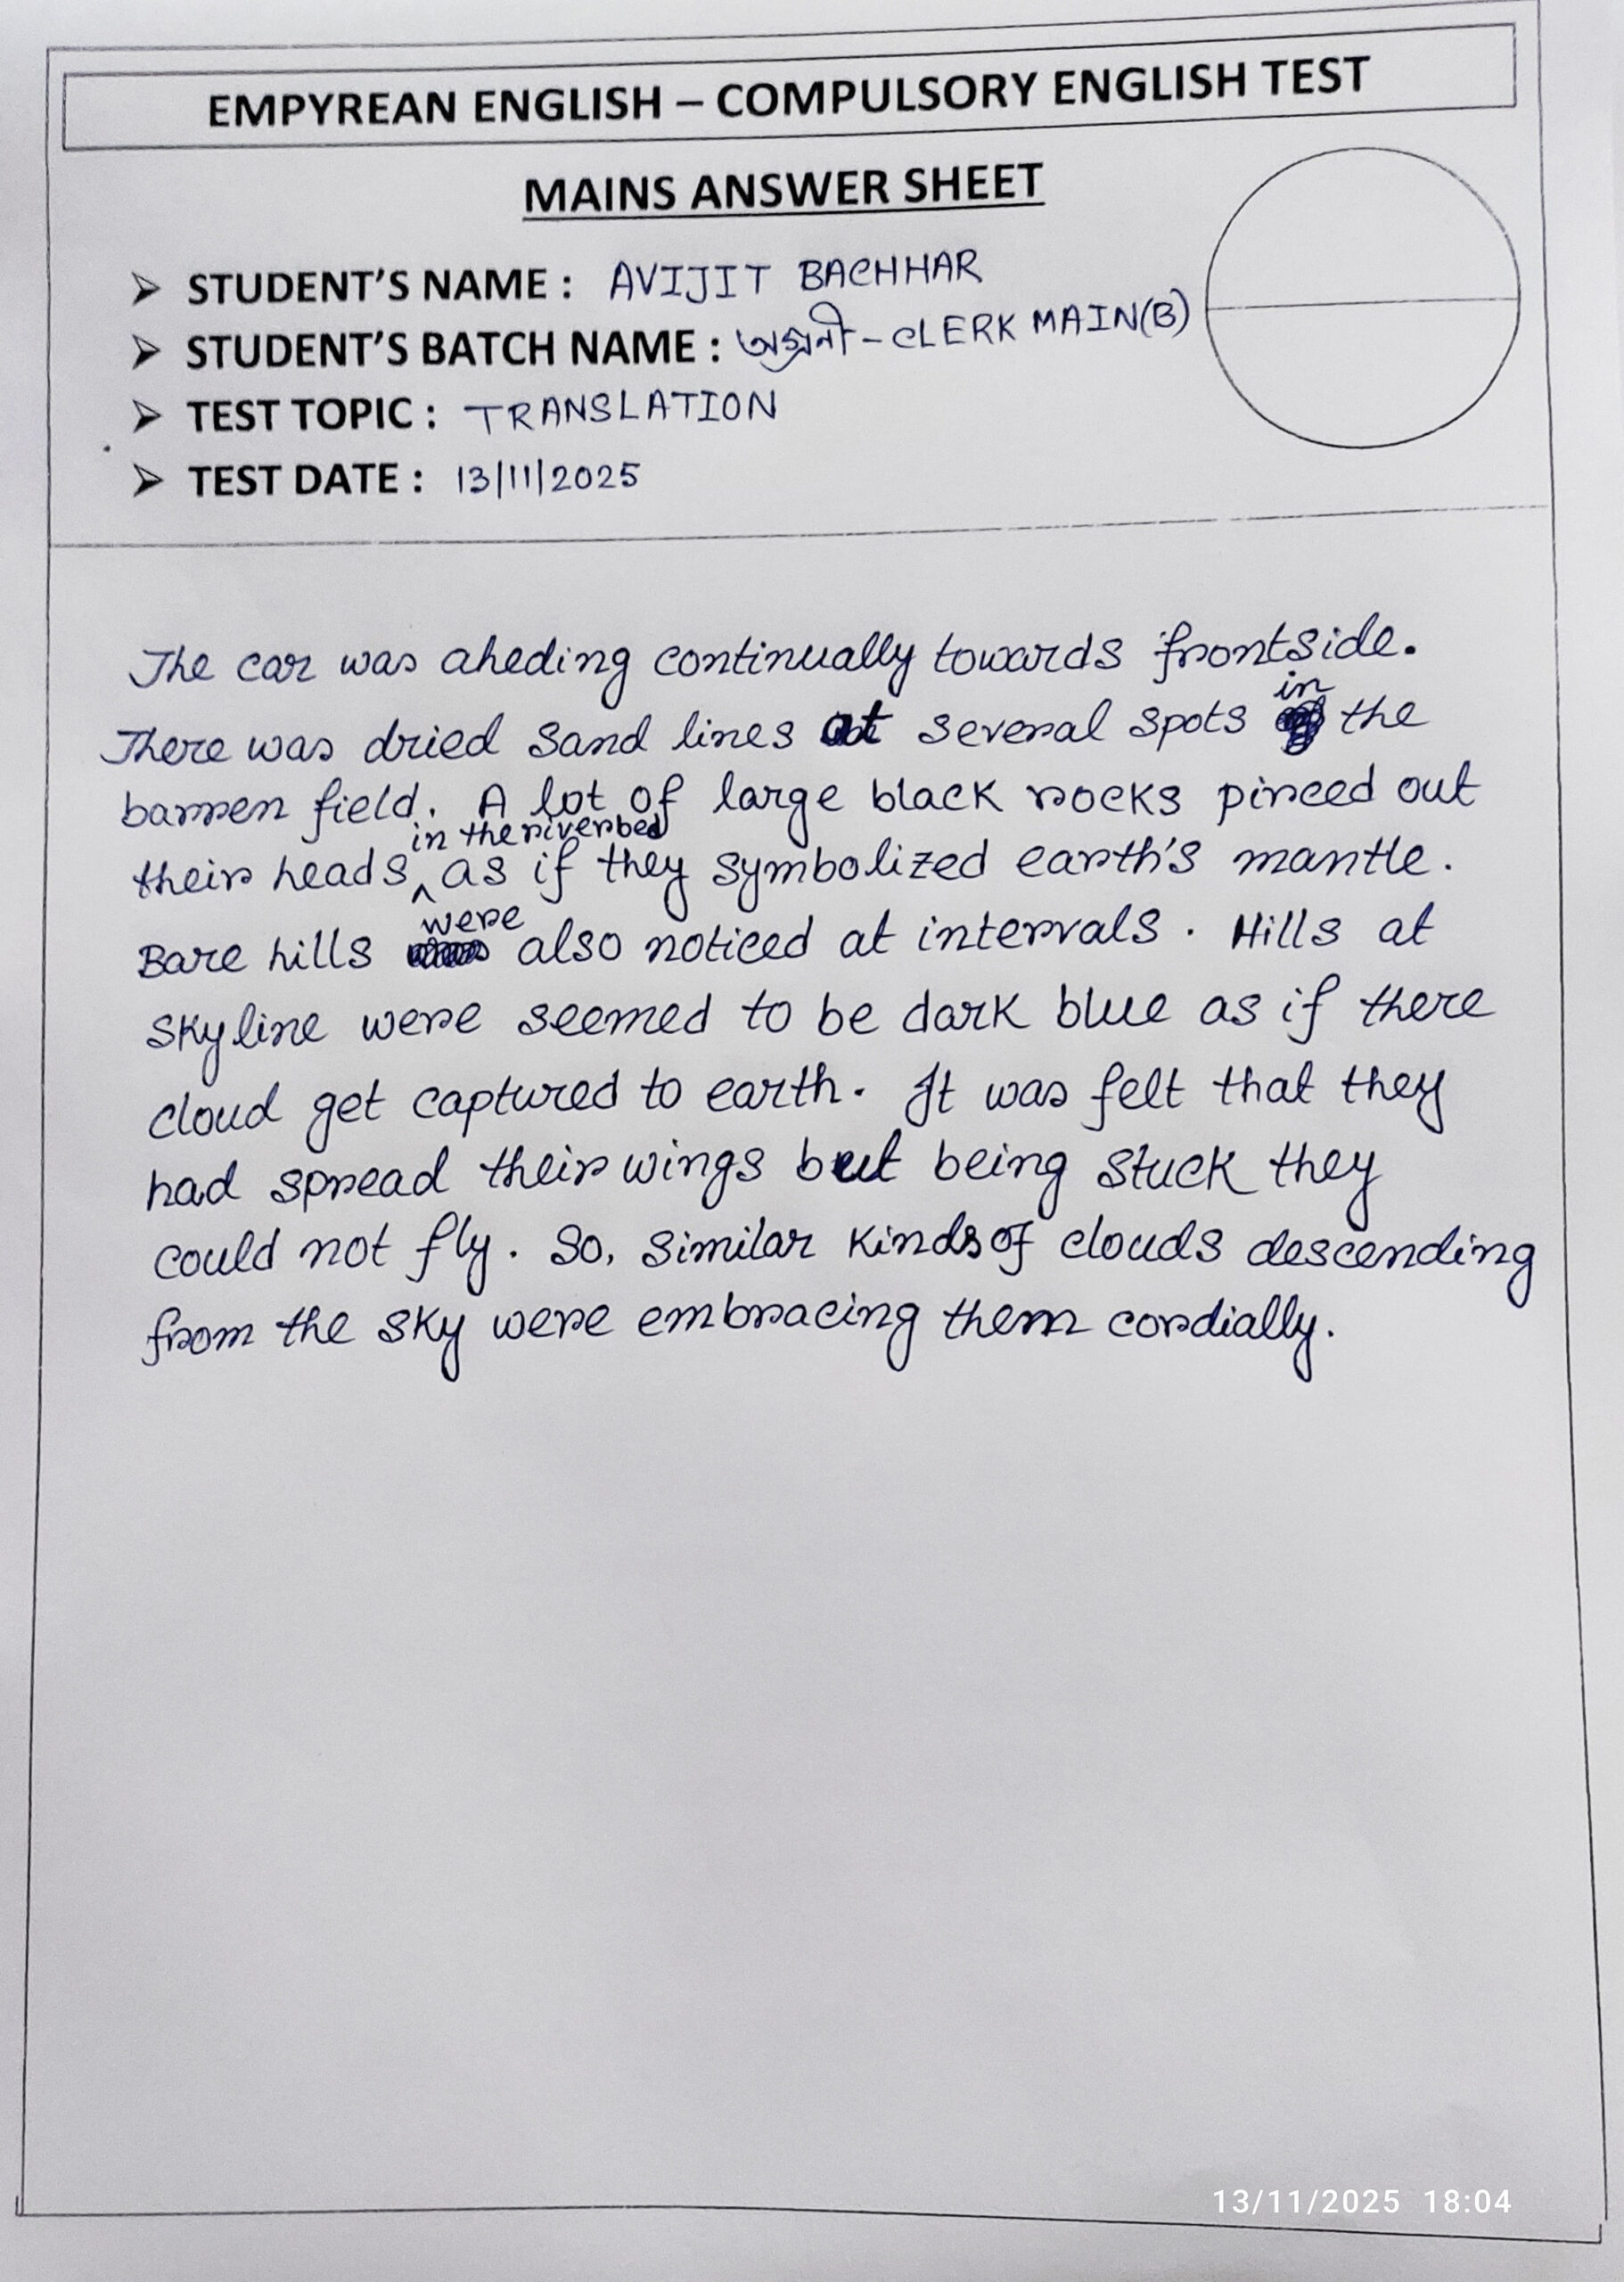 EMPYREAN ENGLISH – COMPULSORY ENGLISH TEST
MAINS ANSWER SHEET
➤ STUDENT'S NAME : AVIJIT BACHHAR
➤ STUDENT'S BATCH NAME : অগ্রনী – CLERK MAIN(B)
➤ TEST TOPIC : TRANSLATION
➤ TEST DATE : 13/11/2025
The car was aheding continually towards frontside.
There was dried sand lines at several spots in the
barren field. A lot of large black rocks pinced out
their heads in the riverbed as if they symbolized earth's mantle.
Bare hills were also noticed at intervals. Hills at
skyline were seemed to be dark blue as if there
cloud get captured to earth. It was felt that they
had spread their wings but being stuck they
could not fly. So, similar kinds of clouds descending
from the sky were embracing them cordially.
13/11/2025 18:04